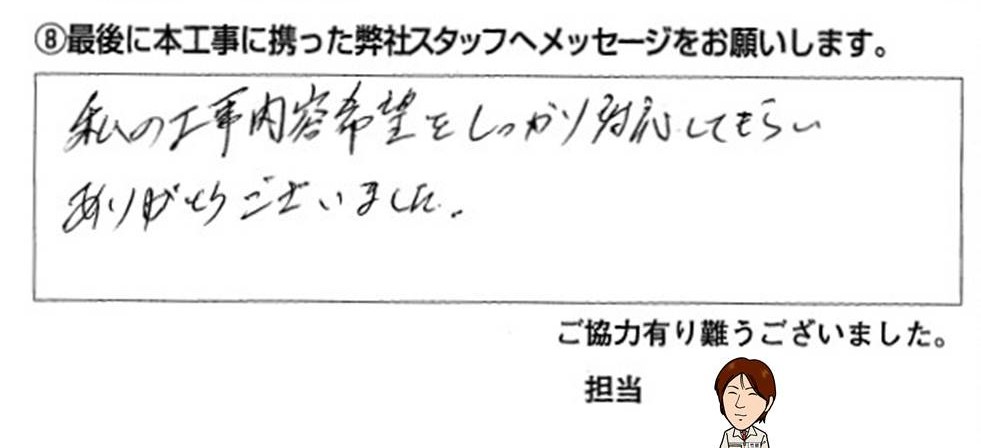 ⑧最後に本工事に携った弊社スタッフへメッセージをお願いします。
私の工事内容希望をしっかり対応してもらい
ありがとうございました.
ご協力有り難うございました。
担当